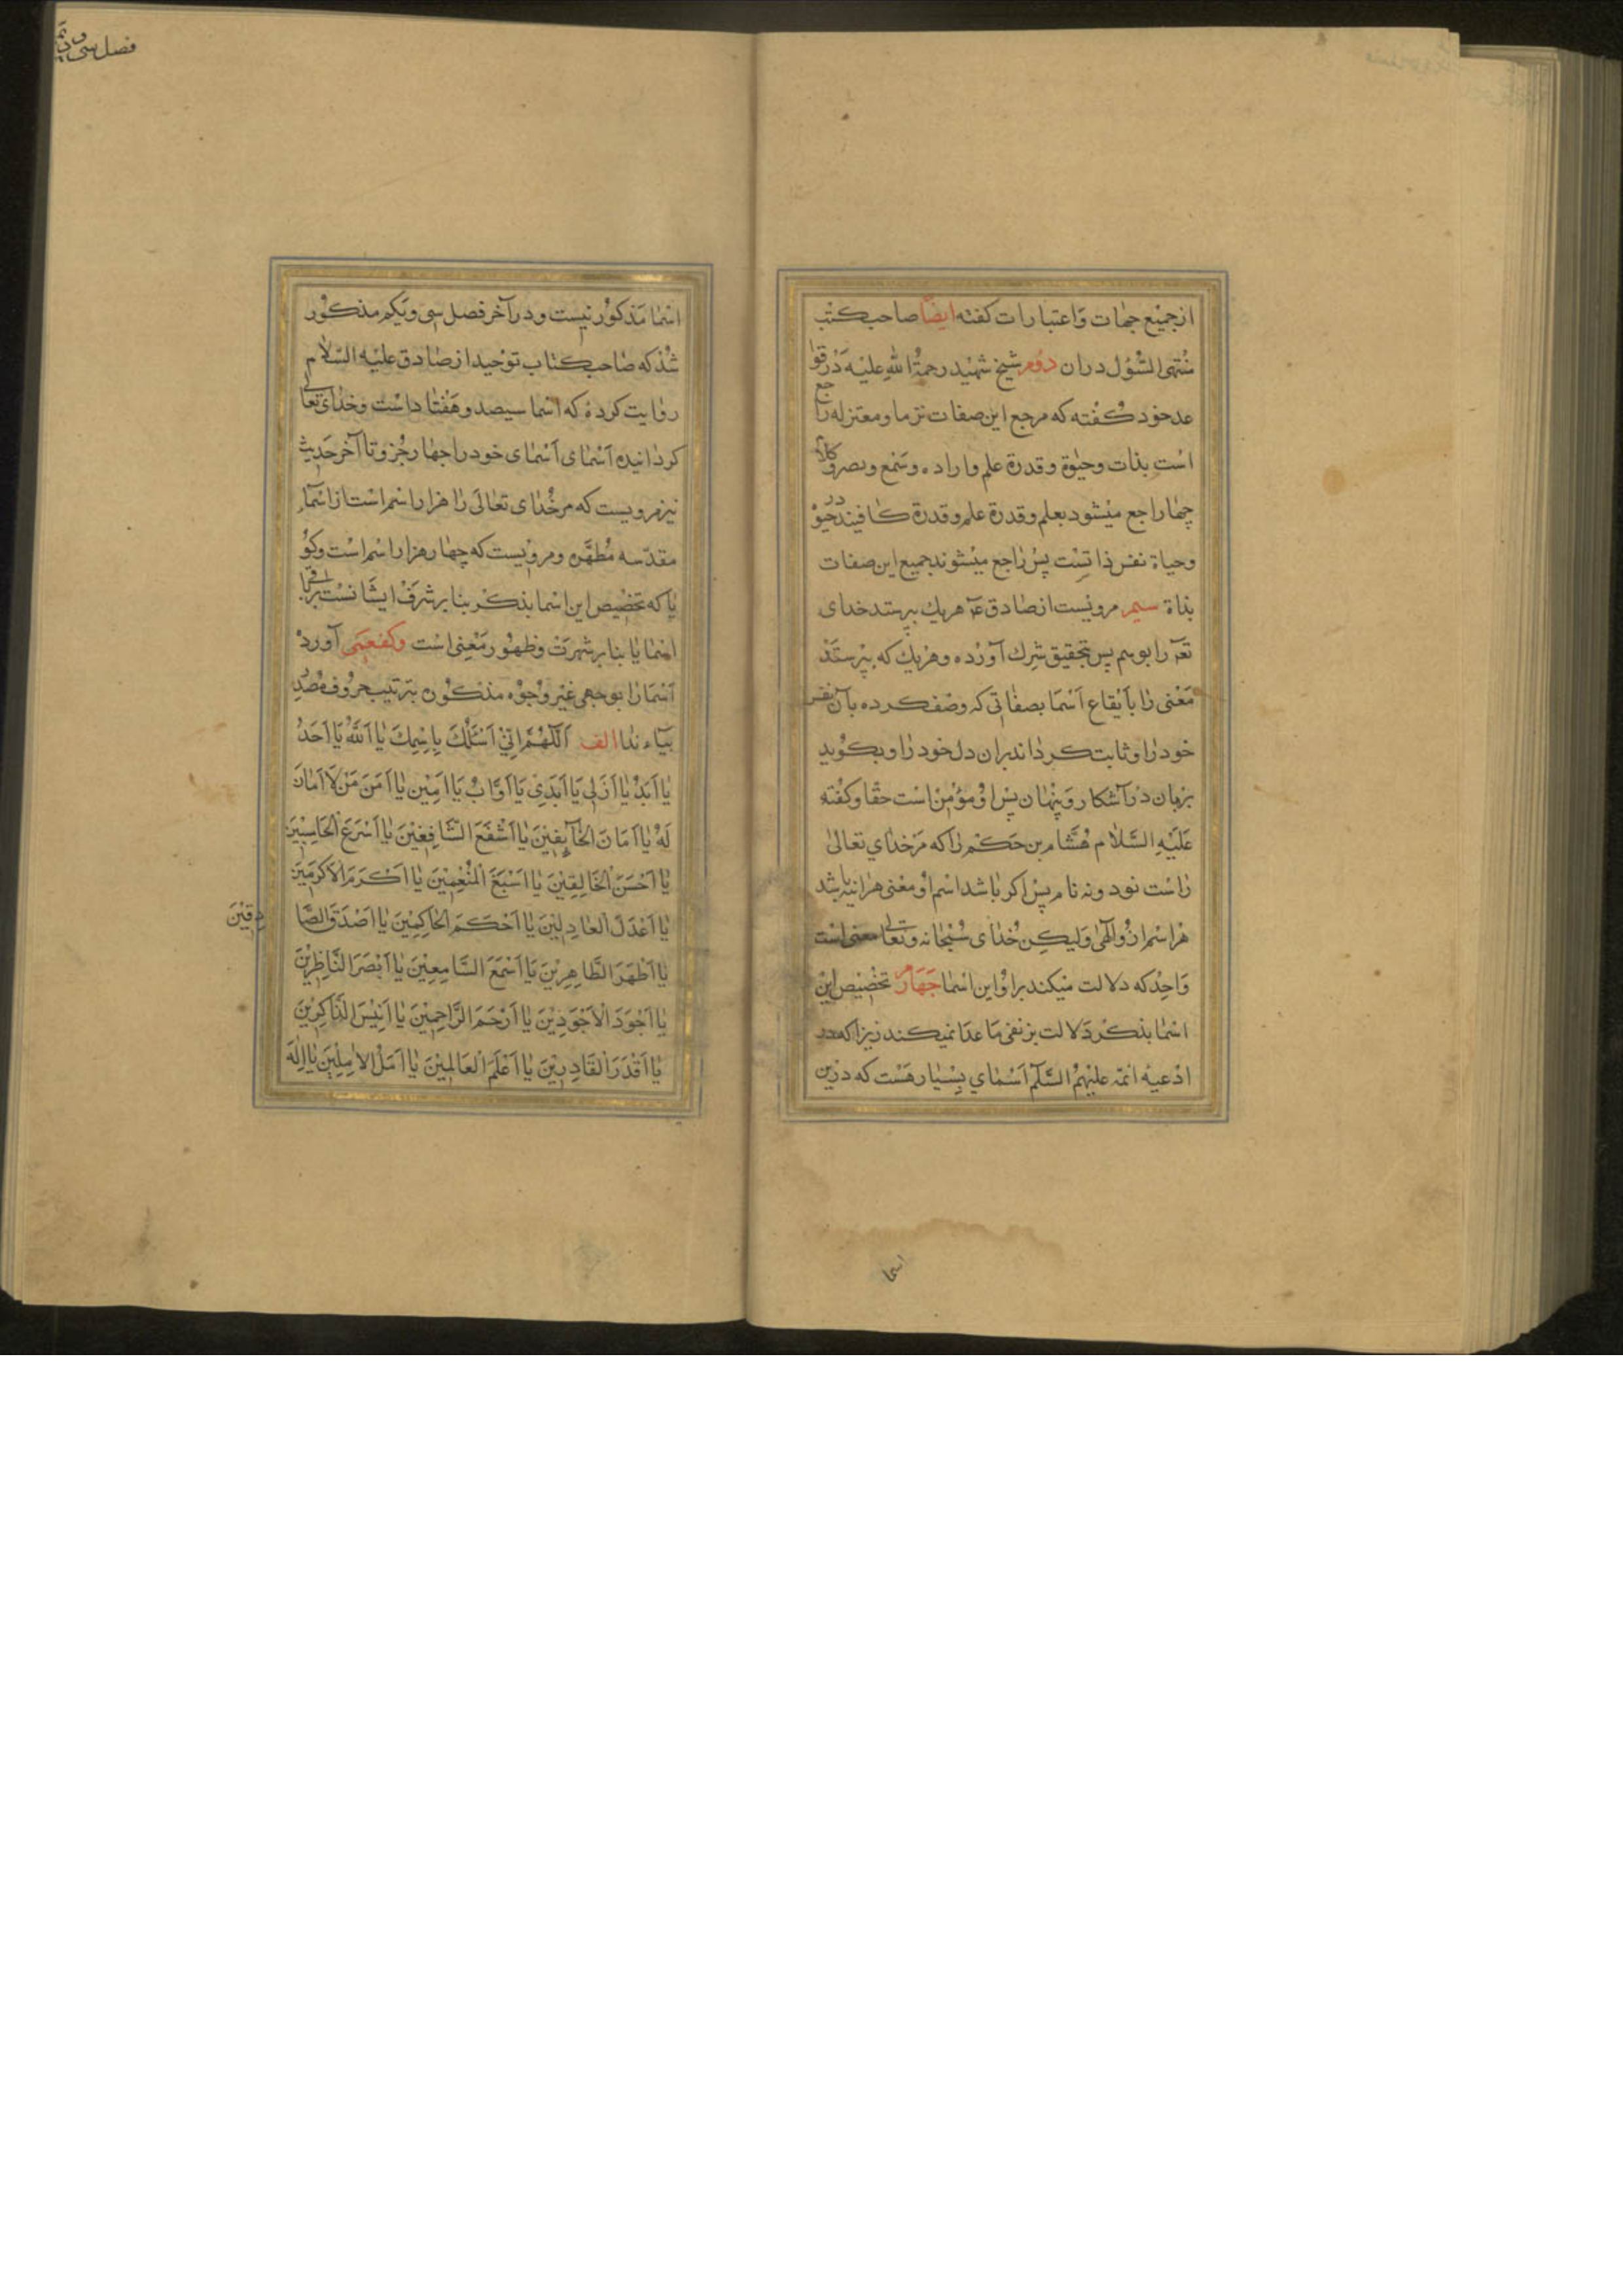 از جمیع جهات و اعتبارات کفته ایضا صاحب کتب
منتهی السّؤل دران دوم شیخ شهید رحمة الله علیه در قوا
عد خود کفته که مرجع این صفات نزد ما و معتزله راجع
است بذات وحیوة وقدرة علم واراده وسمع وبصر وکلام
چهار راجع میشود بعلم وقدرة علم وقدرة کافیند در حیوة
وحیاة نفس ذاتست پس راجع میشوند جمیع این صفات
بذاة سیم مرویست از صادق ع هریك بپرستد خدای
تع را بوهم پس بتحقیق شرك آورده وهریك که بپرستد
معنی را بایقاع اسما بصفاتی که وصف کرده بآن نفس
خود را وثابت کرداند بران دل خود را وبکوید
بزبان در آشکار وپنهان پس او مؤمن است حقا وکفته
علیه السّلام هشام بن حکم را که مر خدای تعالی
راست نود ونه نام پس اکر باشد اسم او معنی هرانیه باشد
هر اسم ازو الهی ولیکن خدای سبحانه وتعالی معنی است
واحد که دلالت میکند براو این اسما چهارم تخصیص این
اسما بذکر دلالت بر نفی ما عدا نمیکند زیرا که در
ادعیه ائمه علیهم السّلم اسمای بسیار هست که درین
اسما
فصل سی و دوم
اسما مذکور نیست ودر آخر فصل سی ویکم مذکور
شد که صاحب کتاب توحید از صادق علیه السّلام
روایت کرده که اسما سیصد وهفتاد است وخدای تعالی
کردانیده اسمای اسمای خود را چهار جزو تا آخر حدیث
نیز مرویست که مر خدای تعالی را هزار اسم است از اسماء
مقدسه مطهره ومرویست که چهار هزار اسم است وکو
یا که تخصیص این اسما بذکر بنابر شرف ایشانست بر باقی
اسما یا بنابر شهرت وظهور معنی است وکفعمی آورده
اسما را بوجهی غیر وجوه مذکون بترتیب حروف مصدر
بیاء ندا الف اَللّهُمَّ اِنّی اَسْئَلُكَ بِاسْمِكَ یا اَللّٰهُ یا اَحَدُ
یا اَبَدُ یا اَزَلی یا اَبَدی یا اَوّابُ یا اَمین یا اَمَنَ مَنْ لا اَمانَ
لَهُ یا اَمانَ الخآئِفینَ یا اَشْفَعَ الشّافِعینَ یا اَسْرَعَ الحاسِبینَ
یا اَحْسَنَ الخالِقینَ یا اَسْبَغَ المُنْعِمینَ یا اَکْرَمَ الاَکرَمینَ
یا اَعْدَلَ العادِلینَ یا اَحْکَمَ الحاکِمینَ یا اَصْدَقَ الصّادِقینَ
یا اَطْهَرَ الطّاهِرینَ یا اَسْمَعَ السّامِعینَ یا اَبْصَرَ النّاظِرینَ
یا اَجْوَدَ الاَجْوَدینَ یا اَرْحَمَ الرّاحِمینَ یا اَنیسَ الذّاکِرینَ
یا اَقْدَرَ القادِرینَ یا اَعْلَمَ العالِمینَ یا اَمَلَ الامِلینَ یا اِلٰهَ